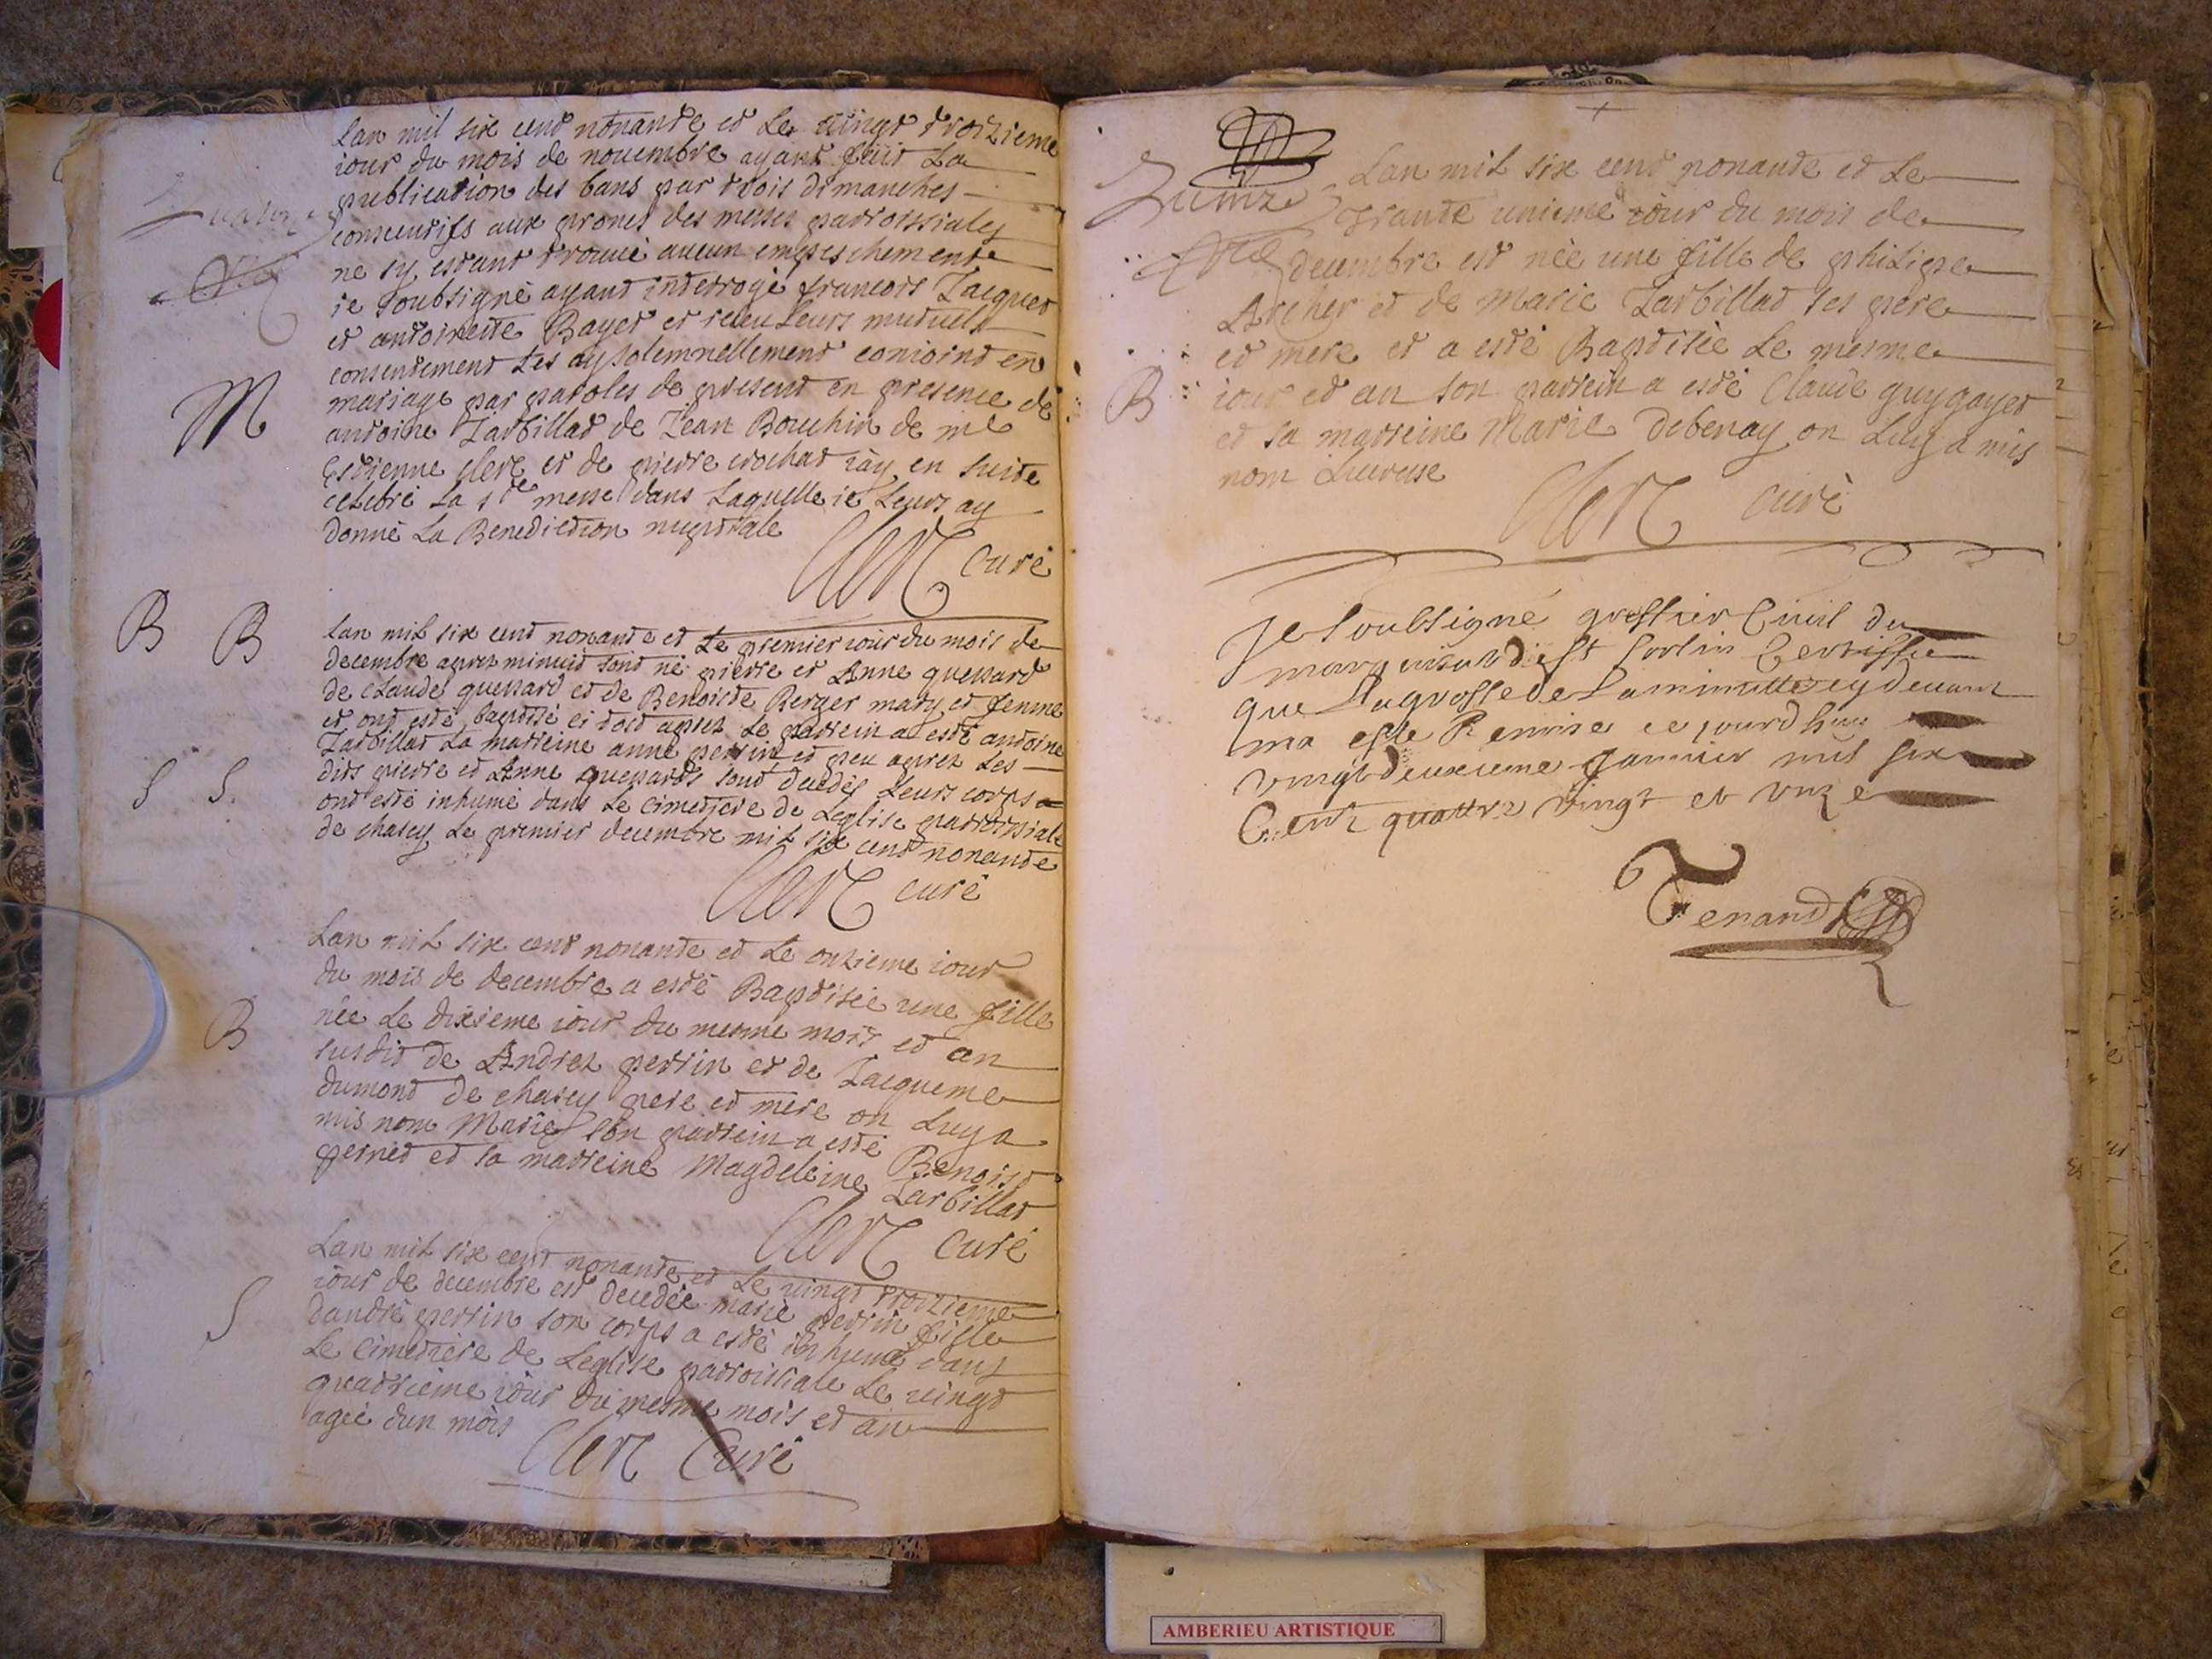 Lan mil six cent nonante et Le vingt troizieme
iour du mois de nouembre ayant fait La
publication des bans par trois dimanches
consecutifs aux prones des messes parroissiales
ne sy estant trouué aucun empeschement
ie soubsigné ayant interrogé francois Jacquet
et antoinette Bayet et receu Leurs mutuels
consentement Les ay solemnellement conioint en
mariage par paroles de present en presence de
antoine Jarbillat de Jean Bouchin de me
Estienne clerc et de pierre crochat iay en suite
celebré La ste messe dans Laquelle ie Leurs ay
donné La Benediction nuptiale
Clerc curé
M
B B
Lan mil six cent nonante et Le premier iour du mois de
decembre apres minuit sont né pierre et Anne quessard
de claude quessard et de Benoiste Berger mary et femme
et ont esté baptisé et tost apres Le parrein a esté antoine
Jarbillat La marreine anne perrin et peu apres Les
dits pierre et Anne quessards sont decedés Leurs corps
ont esté inhumé dans Le cimetiere de Leglise parroissiale
de chasey Le premier decembre mil six cent nonante
S S.
Clerc curé
Lan mil six cent nonante et Le onzieme iour
du mois de decembre a esté Baptisée une fille
née Le dixieme iour du mesme mois et an
susdit de Andrez perrin et de Jacqueme
dumont de chasey pere et mere on Luy a
mis nom Marie son parrein a esté Benoist
pernet et sa marreine Magdeleine Jarbillat
B
Clerc curé
Lan mil six cent nonante et Le vingt troizieme
iour de decembre est decedée marie perrin fille
dandré perrin son corps a esté inhumé dans
Le cimetiere de Leglise parroissiale Le vingt
quatrieme iour du mesme mois et an
agée dun mois
S
Clerc Curé
Lan mil six cent nonante et Le
trante unieme iour du mois de
decembre est née une fille de philipe
Archer et de Marie Jarbillat ses pere
et mere et a esté Baptisée Le mesme
iour et an son parrein a esté Claude guygayet
et sa marreine Marie debenay on Luy a mis
nom
B
Clerc curé
Je soubsigné greffier Ciuil du
marquisat de st sorlin Certiffie
que la grosse de la minutte cy deuant
ma este Remise ce jourdhuy
vingt deuxieme Januier mil six
Cent quattre vingt et unze
Tenand
AMBERIEU ARTISTIQUE